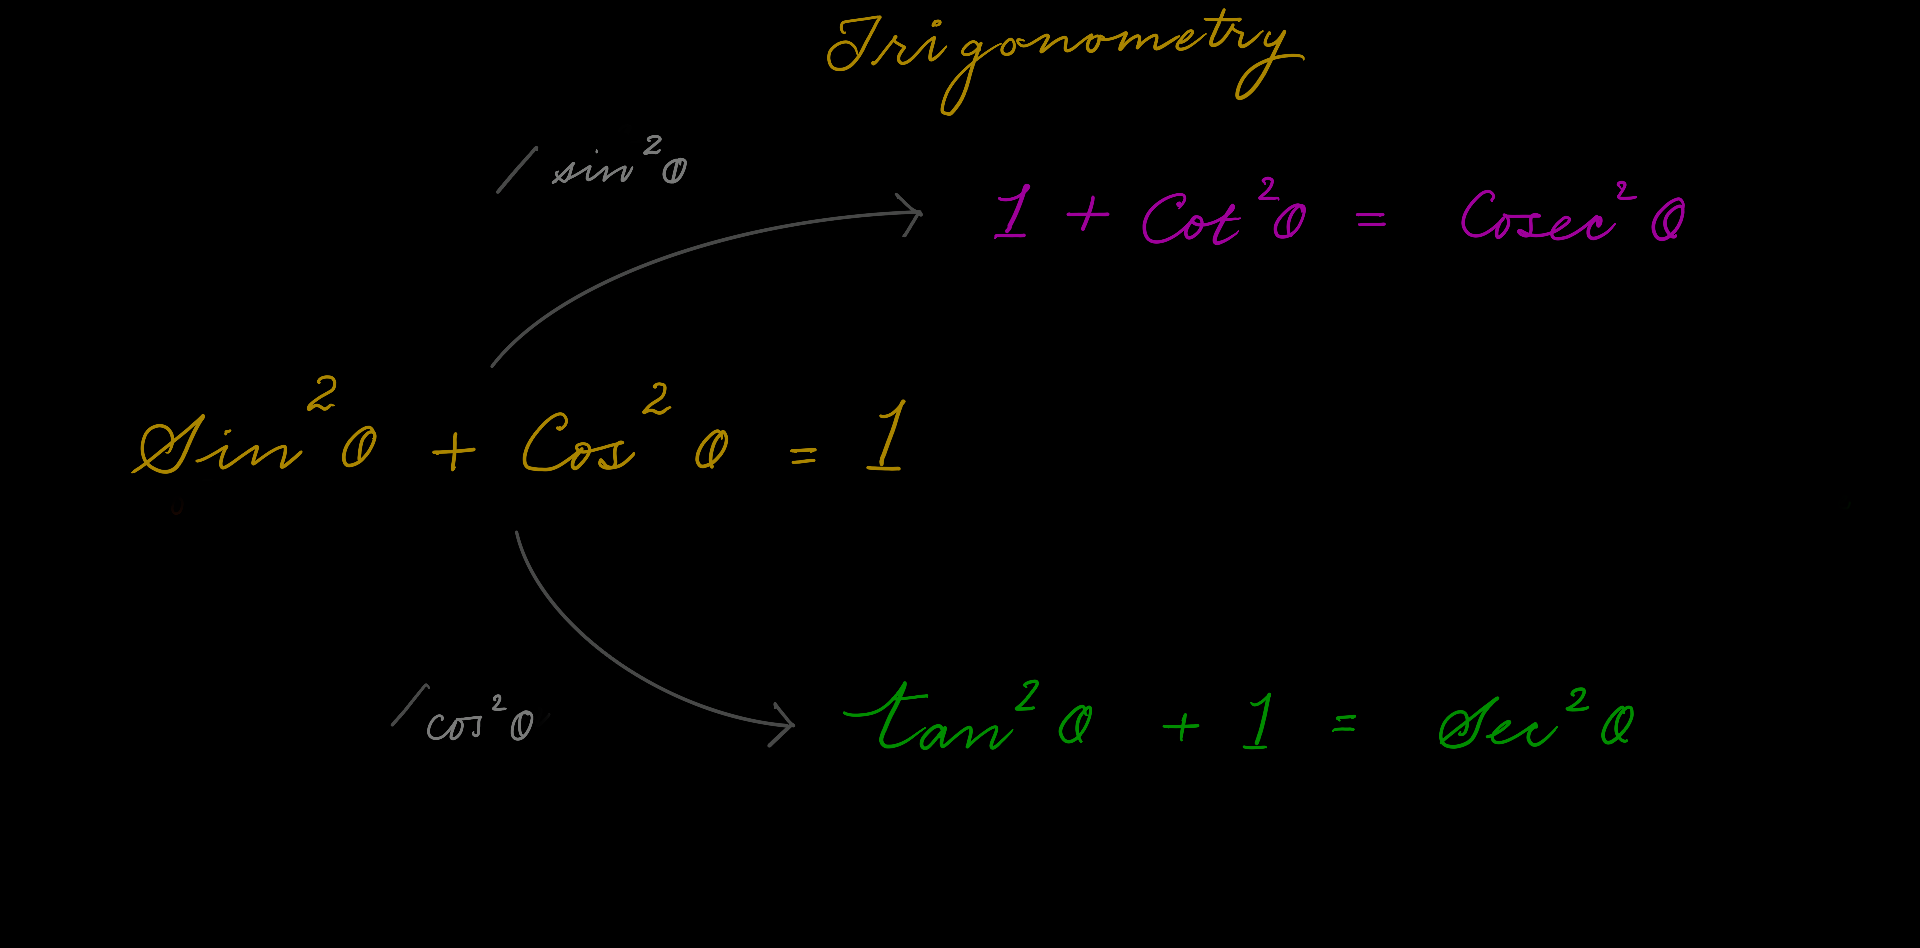 Trigonometry
/ sin²θ
1 + Cot²θ = Cosec²θ
Sin²θ + Cos²θ = 1
/ cos²θ
tan²θ + 1 = Sec²θ